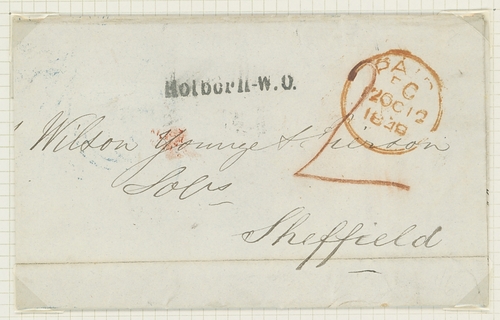 Holborn-W.O.
PAID
FC
12OC12
1848
2
Wilson Younge & Pierson
Solrs
Sheffield